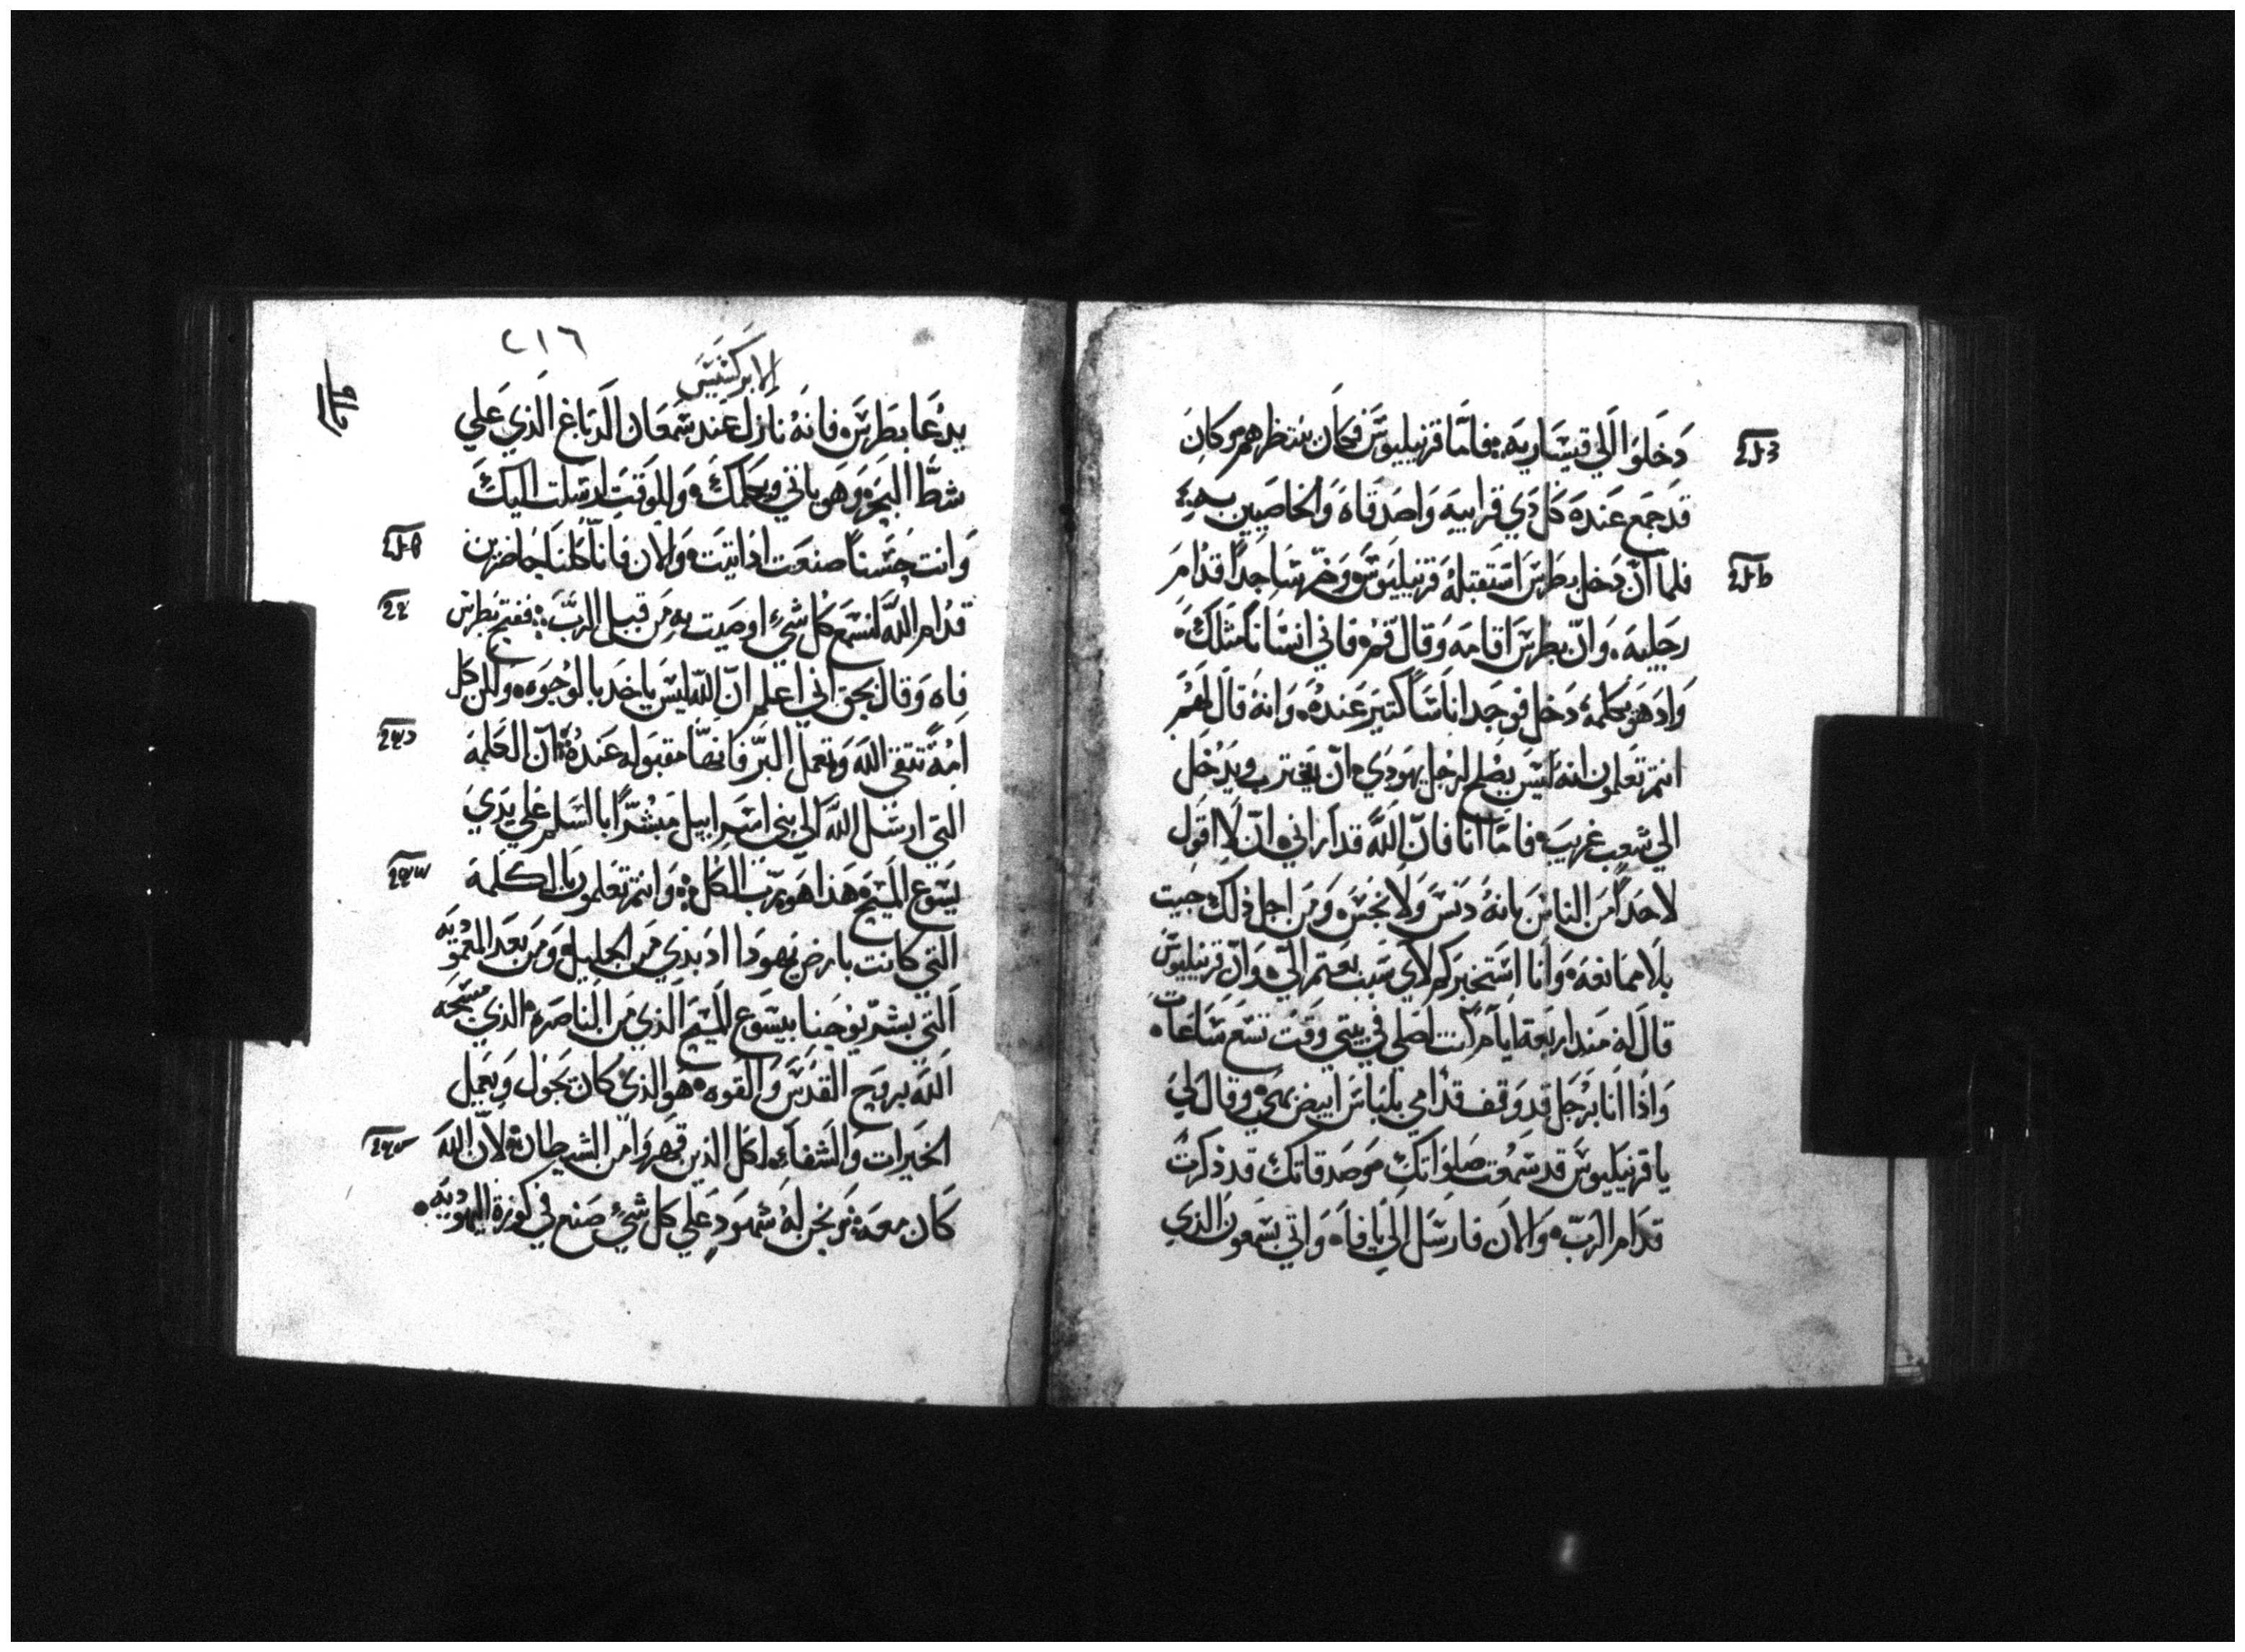 دخلوا الي قيساريه فاما قرنيليوس فكان ينتظرهم وكان
قد جمع عنده كل دي قرابيه واصدقاه والخاصيين
فلما ان دخل بطرس استقبله قرنيليوس وخر ساجدا قدام
رجليه وان بطرس اقامه وقال قم فاني انسانا مثلك
واد هو يكلمه دخل فوجد اناسا كتير عنده وانه قال لهم
انتم تعلمون انه ليس يصلح لرجل يهودي ان يقترب ويدخل
الي شعب غريب فاما انا فان الله قد اراني ان لا اقول
لاحدا من الناس بانه دنس ولا نجس ومن اجل ذلك جيت
بلا ممانعه وانا استخبركم لاي سبب بعتم الي وان قرنيليوس
قال له مند اربعة ايام كنت اصلي في بيتي وقت تسع ساعات
واذا انا برجل قد وقف قدامي بلباس ابيض وقال لي
يا قرنيليوس قد سمعت صلواتك وصدقاتك قد ذكرت
قدام الرب والان فارسل الي يافا واتي بسمعون الذي
٢١٦
الابركسيس
يدعا بطرس فانه نازل عند سمعان الدباغ الذي علي
شط البحر وهو ياتي ويكلمك وللوقت ارسلت اليك
وانت حسنا صنعت اد اتيت والان فانا كلنا حاضرين
قدام الله لنسمع كل شيء اوصيت به من قبل الرب ففتح بطرس
فاه وقال بحق اني اعلم ان الله ليس ياخد بالوجوه ولكن كل
امة تتقي الله وتعمل البر فانها مقبوله عنده ان الكلمة
التي ارسل الله الي بني اسراييل مبشرا بالسلم علي يدي
يسوع المسيح هذا هو رب الكل وانتم تعلمون بالكلمة
التي كانت بارض يهودا اد بدي من الجليل ومن بعد المعموديه
التي بشر يوحنا بيسوع المسيح الذي من الناصره الذي مسحه
الله بروح القدس والقوه هو الذي كان يجول ويعمل
الخيرات والشفاء لكل الذين قهروا من الشيطان لان الله
كان معه ونحن له شهود علي كل شيء صنع في كورة اليهوديه